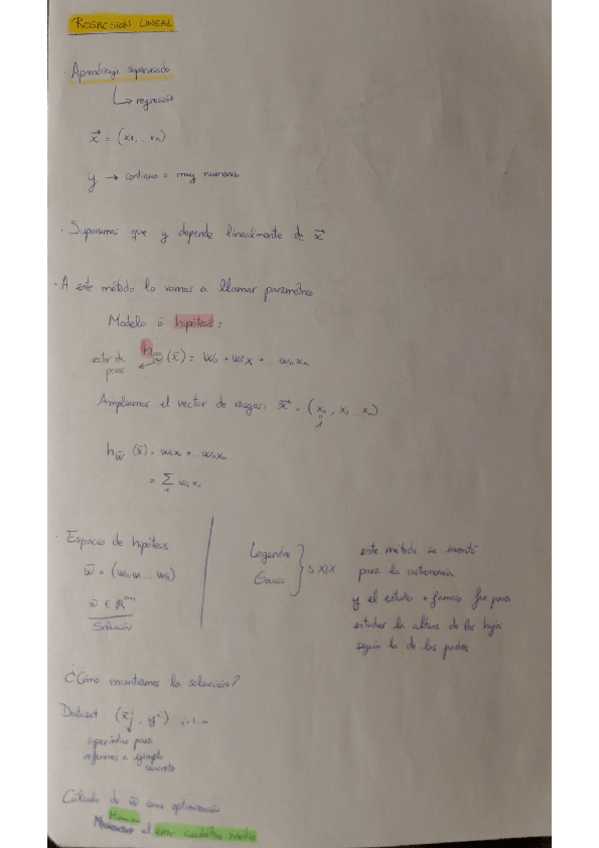 REGRESIÓN LINEAL
Aprendizaje supervisado
↳ regresión
x⃗ = (x1, ... xn)
y → continuo o muy numeroso
· Suponemos que y depende linealmente de x⃗
· A este método lo vamos a llamar paramétrico
Modelo ó hipótesis:
h w̄ (x̄) = w0 + w1x + ... wnxn
vector de
pesos
Ampliamos el vector de rasgos: x⃗ = (x0, x1 ... xn)
1
h w̄ (x̄) = w0x + ... wnxn
= Σ wi xi
i
· Espacio de hipótesis
w̄ = (w0, w1 ... wn)
w̄ ∈ ℝⁿ⁺¹
Solución
Legendre
Gauss
S XIX
este método se inventó
para la astronomía
y el estudio + famoso fue para
estudiar la altura de los hijos
según la de los padres
¿Cómo encontramos la solución?
Dataset (x̄j, yj)
superíndice para
referirnos a ejemplo
concreto
Cálculo de w̄ como optimización
Minimizar el error cuadrático medio